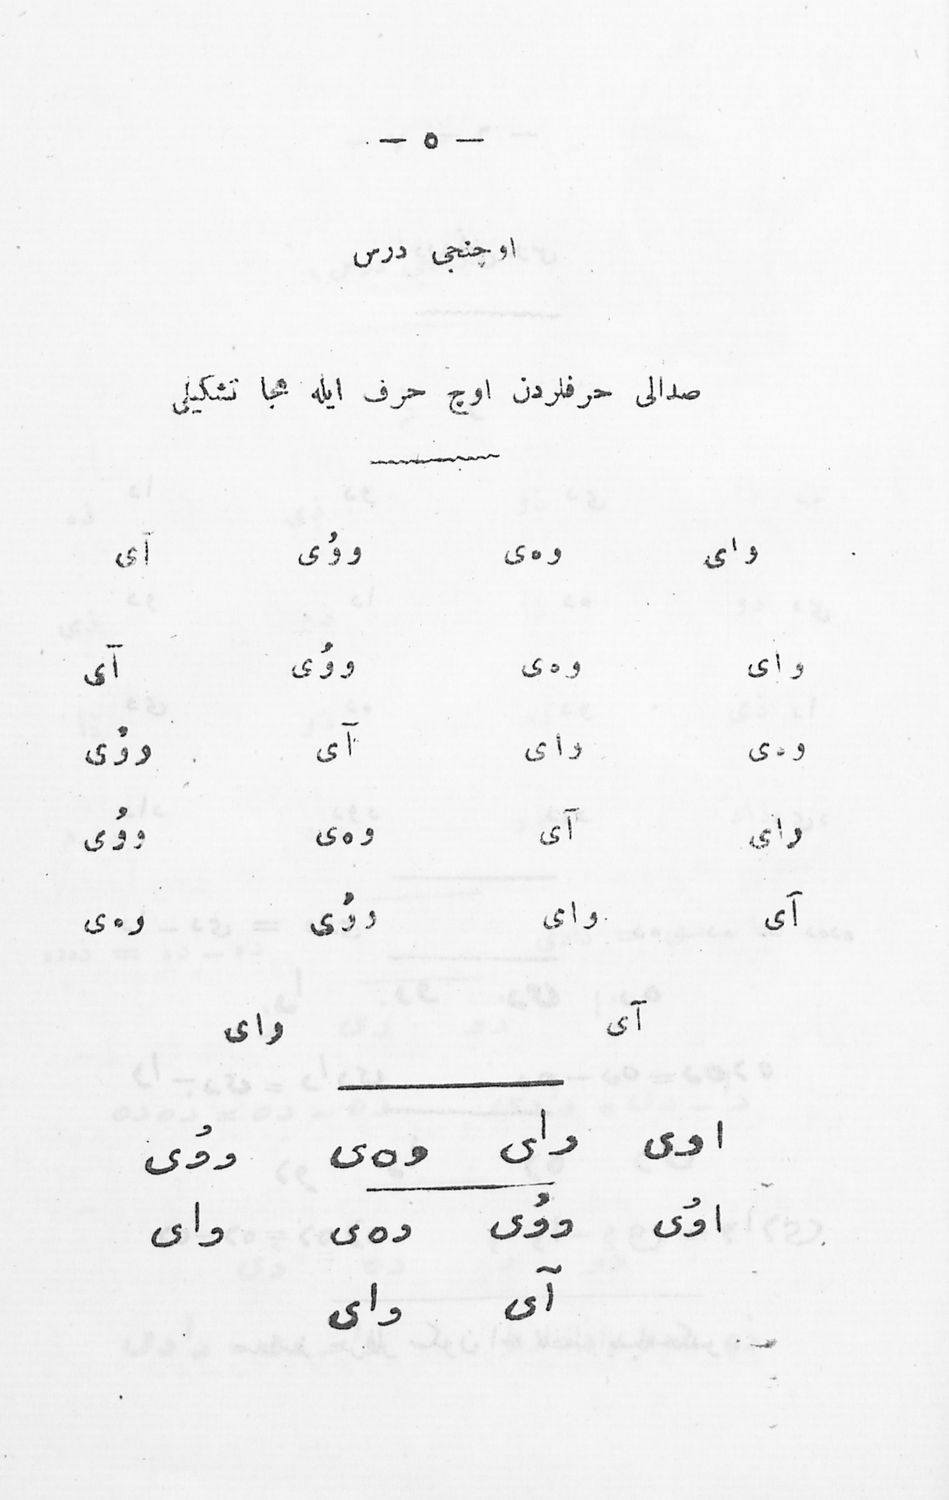 — ٥ —
اوچنجی درس
صدالی حرفلردن اوچ حرف ایله هجا تشکیلی
وای وه‌ی ووُی آی
وای وه‌ی ووُی آی
وه‌ی وای آی ووُی
وای آی وه‌ی ووُی
آی وای ووُی وه‌ی
آی وای
اوی وای وه‌ی ووُی
اوُی ووُی وه‌ی وای
آی وای